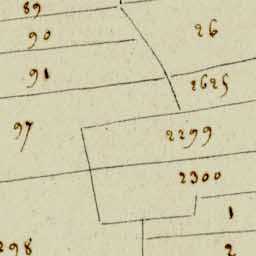 89
90
26
91
2625
97
2299
2300
1
298
2